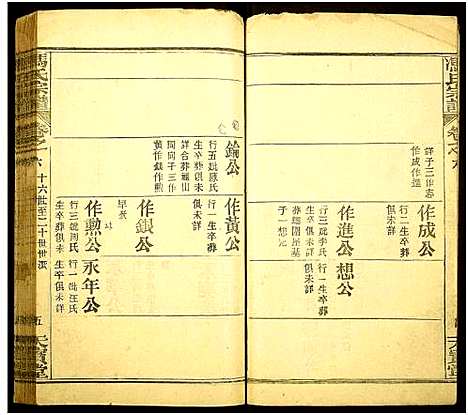 馮氏宗譜
卷之六
詳子三作志
作成作進
作成公
行二生卒葬
俱未詳
作進公
行三娶李氏
生卒俱未詳
子一想
想公
行一生卒葬
俱未詳
鑰公
行五娶陳氏
生卒俱未詳
同子三作
黃作銀作勳
作黃公
行一生卒葬
俱未詳
作銀公
早
作勳公
行三娶周氏
生卒葬俱未詳
永年公
行一娶汪氏
生卒葬俱未詳
馮氏宗譜
卷之六
十六世至二十世世系
五
天寶堂